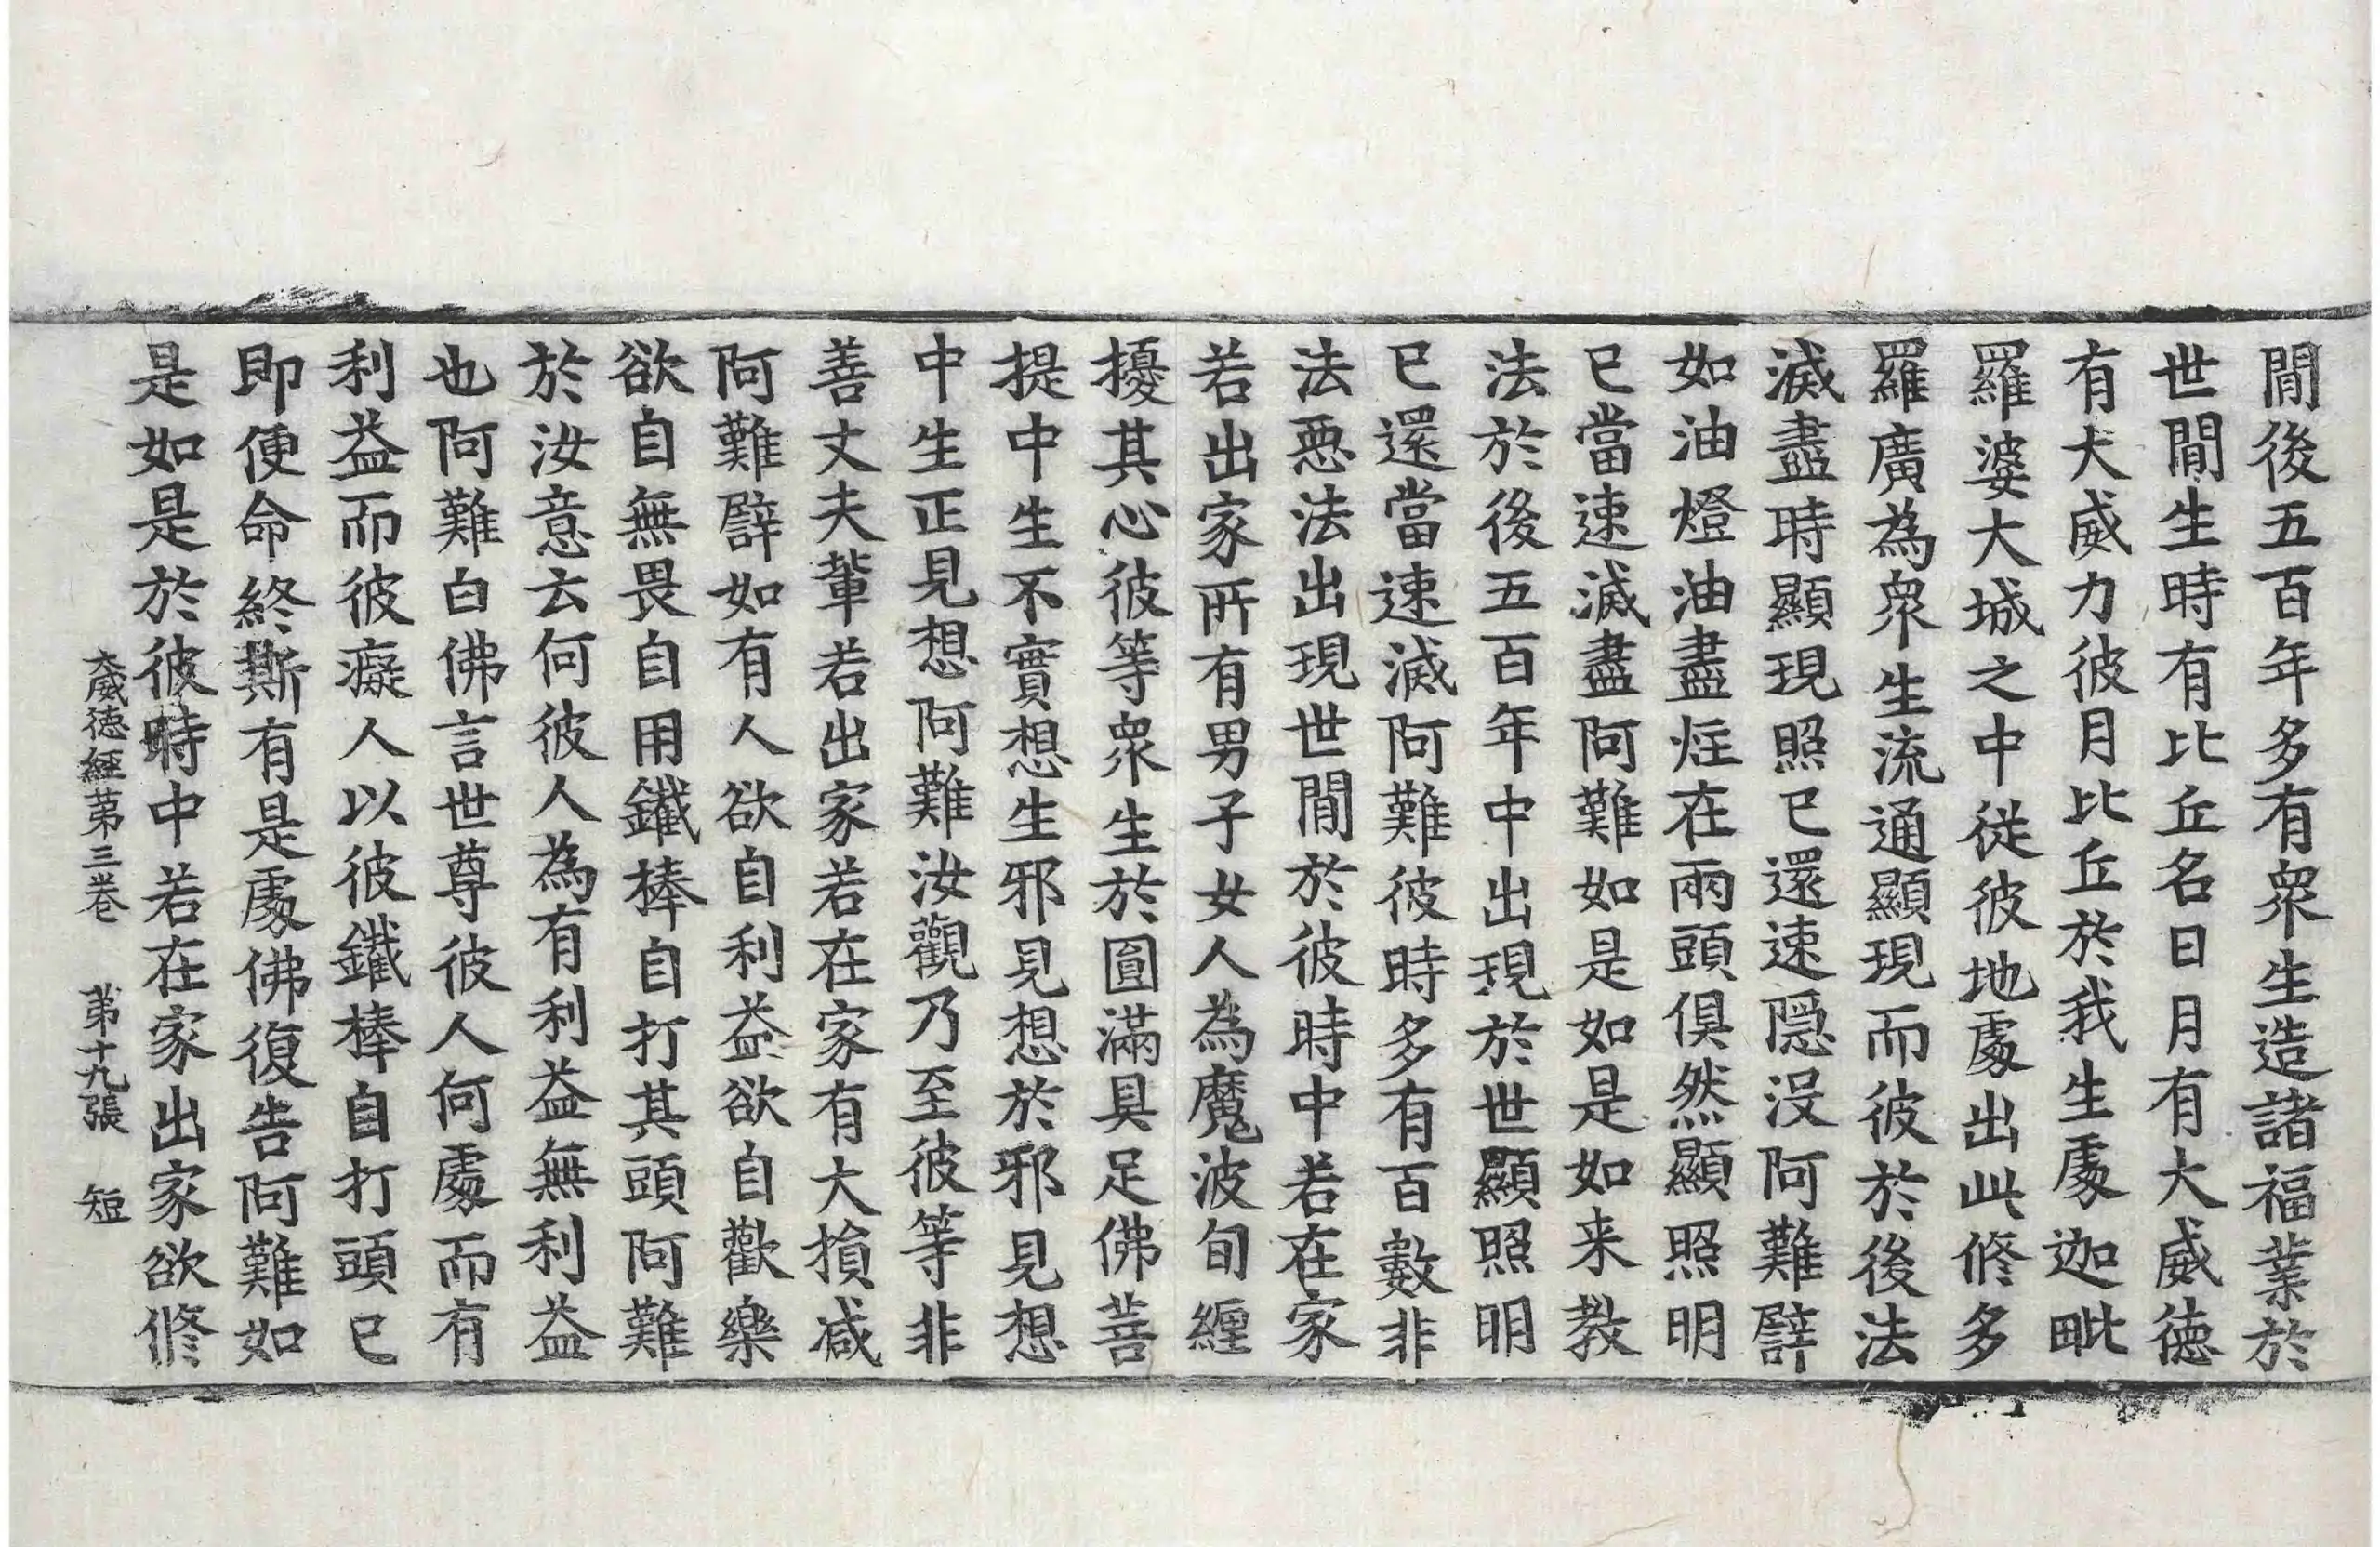 閒後五百年多有衆生造諸福業於
世閒生時有比丘名日月有大威徳
有大威力彼月比丘於我生處迦毗
羅婆大城之中從彼地處出此修多
羅廣為衆生流通顯現而彼於後法
滅盡時顯現照已還速隱沒阿難譬
如油燈油盡炷在兩頭俱然顯照明
已當速滅盡阿難如是如是如来教
法於後五百年中出現於世顯照明
已還當速滅阿難彼時多有百數非
法惡法出現世閒於彼時中若在家
若出家所有男子女人為魔波旬纏
擾其心彼等衆生於圓滿具足佛菩
提中生不實想生邪見想於邪見想
中生正見想阿難汝觀乃至彼等非
善丈夫輩若出家若在家有大損減
阿難譬如有人欲自利益欲自歡樂
欲自無畏自用鐵棒自打其頭阿難
於汝意云何彼人為有利益無利益
也阿難白佛言世尊彼人何處而有
利益而彼癡人以彼鐵棒自打頭已
即便命終斯有是處佛復告阿難如
是如是於彼時中若在家出家欲修
大威徳經第三卷　第十九張　短